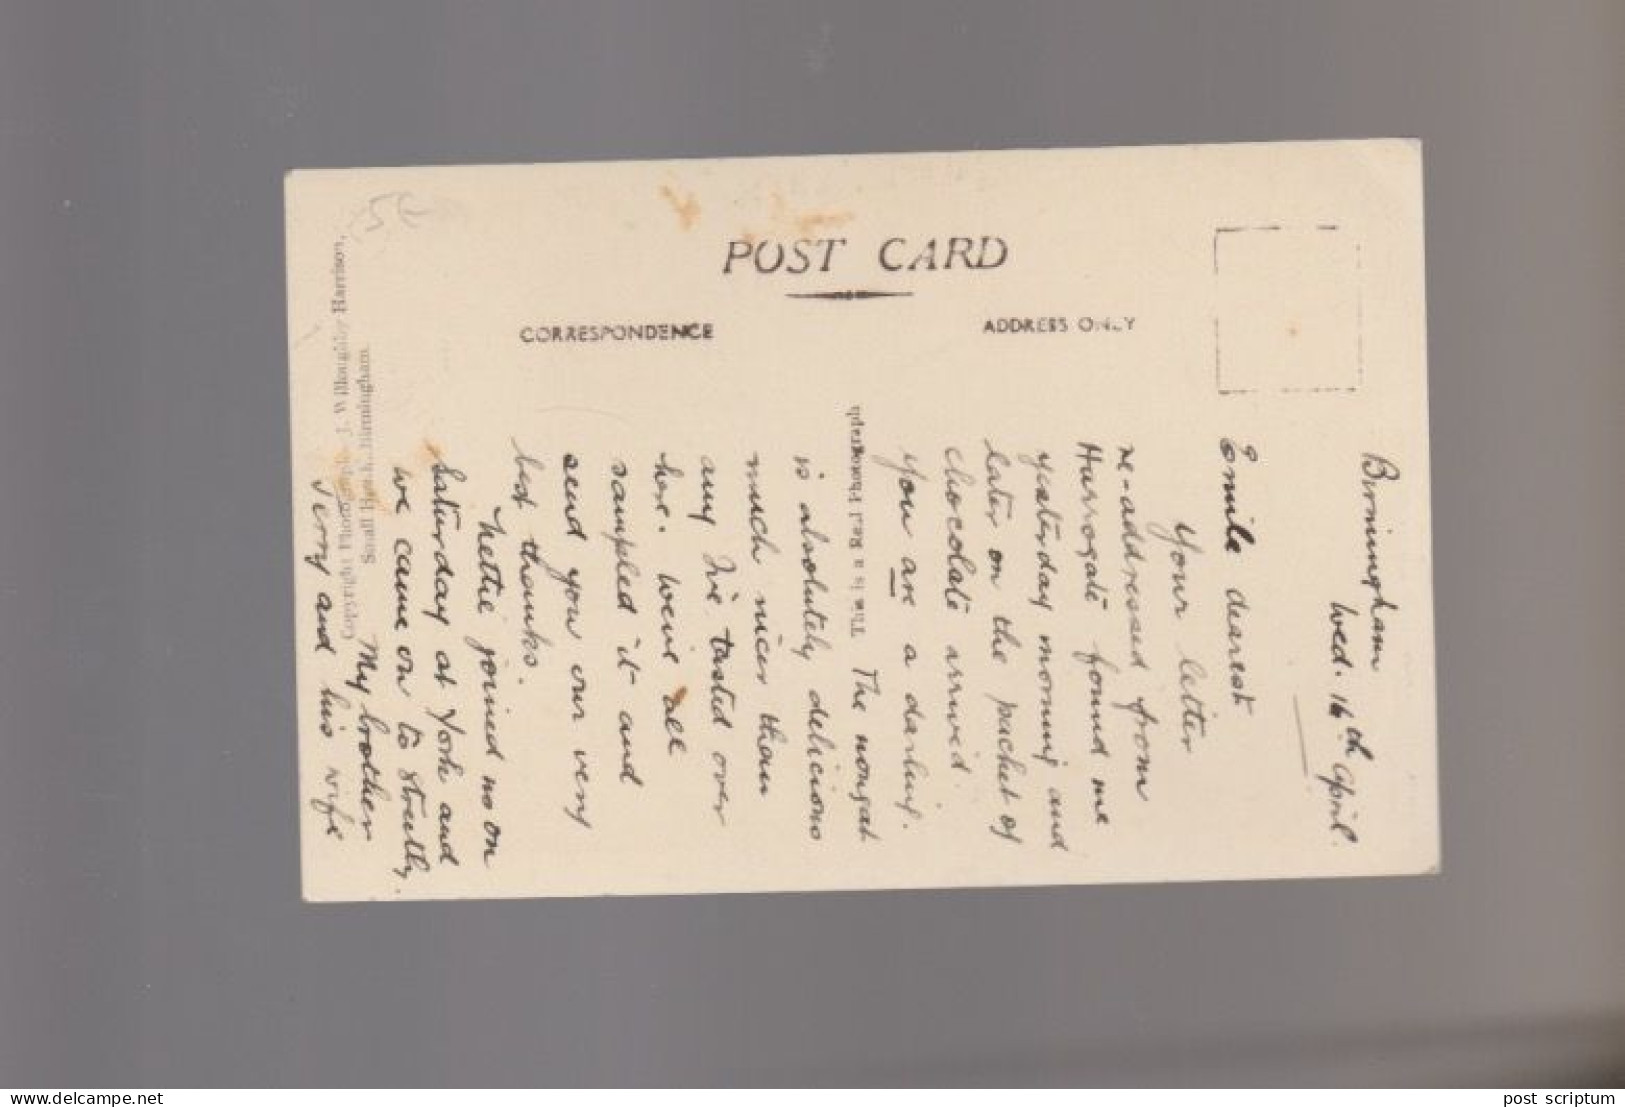 POST CARD
CORRESPONDENCE
ADDRESS ONLY
This is a Real Photograph
Copyright Photograph J. Willoughby Harrison,
Small Heath, Birmingham.
5€
Birmingham
Wed. 16th April.
Emile dearest
Your letter
re-addressed from
Harrogate found me
yesterday morning and
later on the packet of
chocolate arrived.
You are a darling.
The nougat
is absolutely delicious
much nicer than
any I've tasted over
here. We've all
sampled it and
send you our very
best thanks.
Nettie joined us on
Saturday at York and
we came on to Streetly.
My brother
Jerry and his wife
post scriptum
delcampe.net